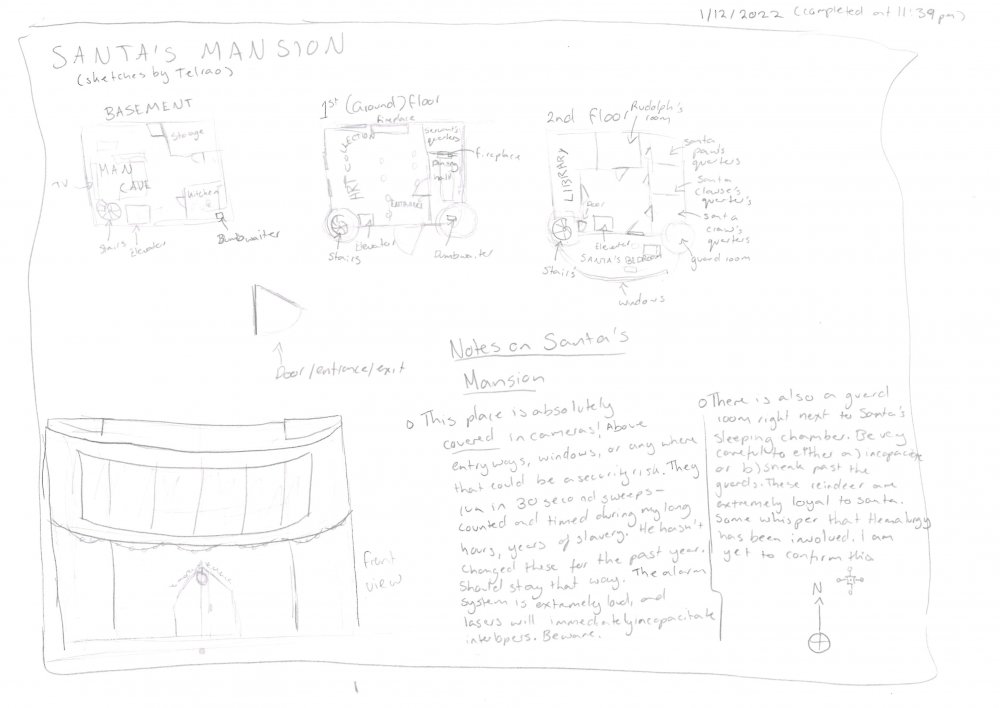 1/12/2022 (completed at 11:39pm)
SANTA'S MANSION
(sketches by Telrao)
BASEMENT
Storage
MAN
CAVE
TV
Kitchen
Stairs
Elevator
Dumbwaiter
1st (Ground) Floor
fireplace
ART COLLECTION
servant's
quarters
fireplace
hall
ENTRANCE
Stairs
Elevator
Dumbwaiter
2nd Floor
Rudolph's
room
LIBRARY
santa
quarters
Santa
clause's
quarters
santa
quarters
guard room
Door
Elevator
SANTA'S BEDROOM
Stairs
windows
Door/entrance/exit
front
view
Notes on Santa's
Mansion
This place is absolutely
covered in cameras! Above
entry ways, windows, or any where
that could be a security risk. They
run in 30 second sweeps-
counted and timed during my long
hours, years of slavery. He hasn't
changed these for the past year.
Should stay that way. The alarm
system is extremely loud, and
lasers will immediately incapacitate
interlopers. Beware.
There is also a guard
room right next to Santa's
sleeping chamber. Be very
careful to either a) incapacitate
or b) sneak past the
guards. These reindeer are
extremely loyal to santa.
Some whisper that Hemalurgy
has been involved. I am
yet to confirm this
N
1